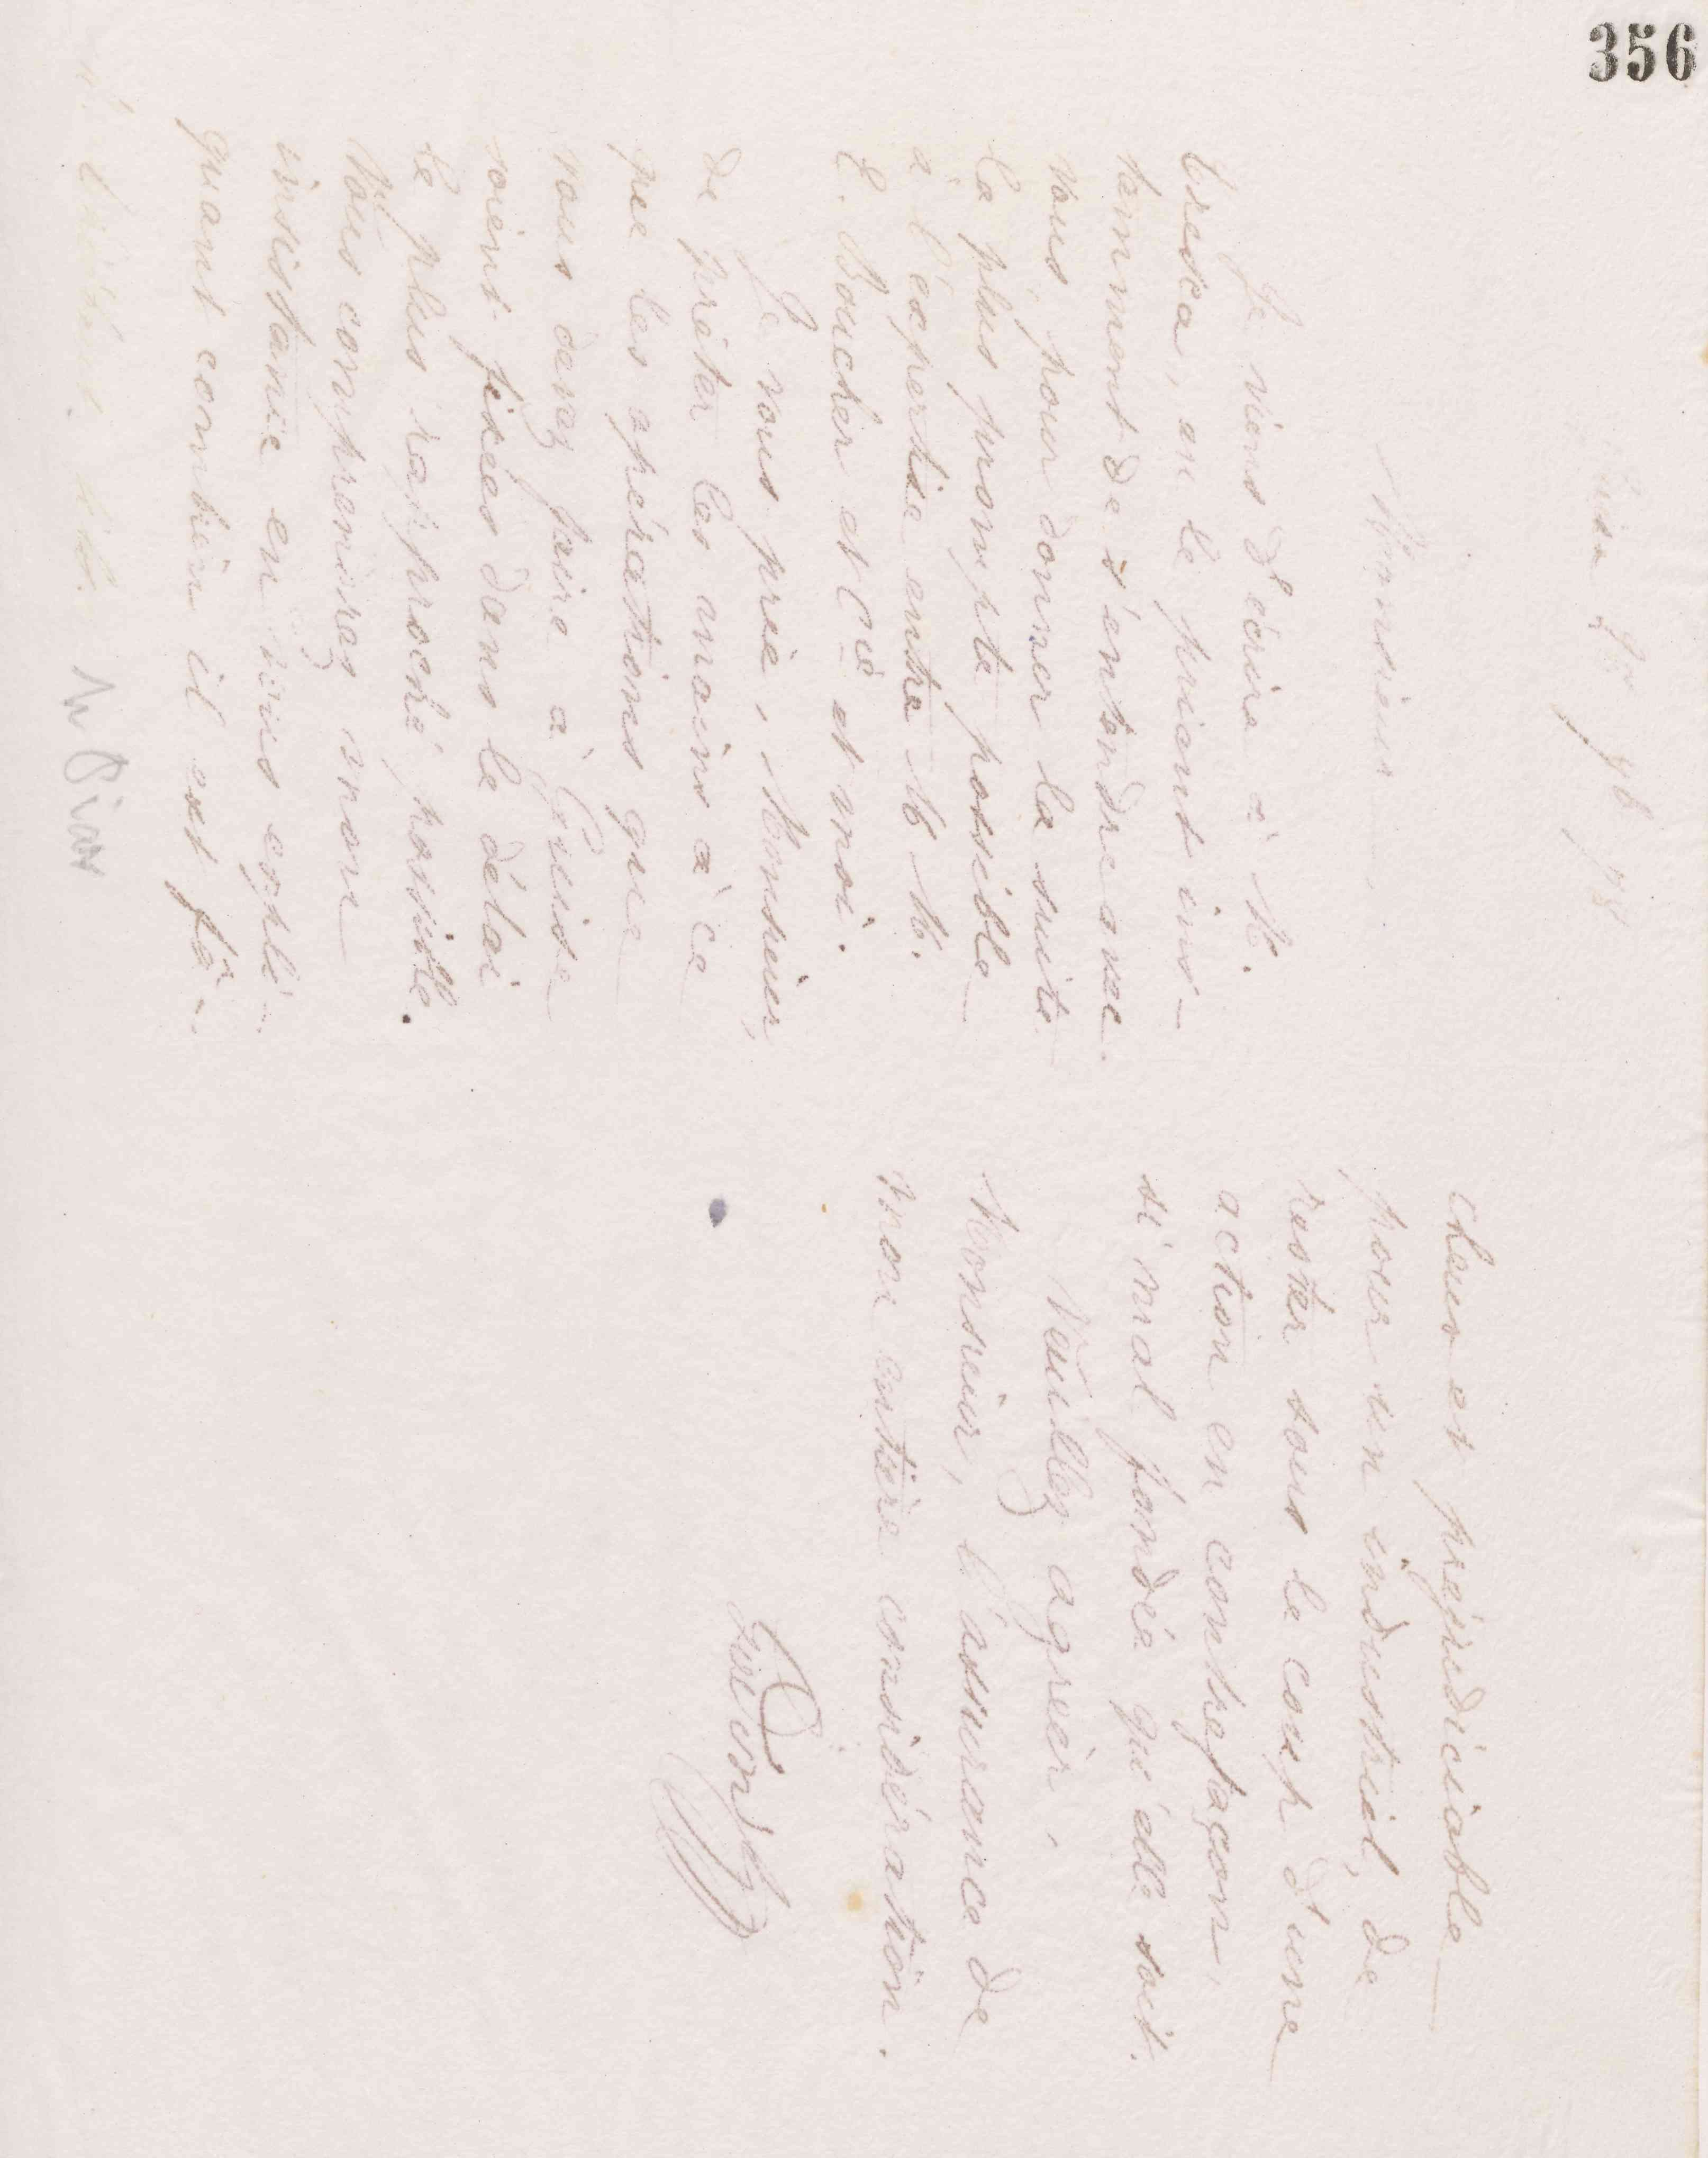 356
Guise 9bre 78
Monsieur,
Je viens d'écrire à M.
Tresca, en le priant ins-
tamment de s'entendre avec
vous pour donner la suite
la plus prompte possible
à l'expertise entre M M.
E. Boucher et Cie et moi.
Je vous prie, Monsieur,
de prêter les mains à ce
que les opérations que
vous devez faire à Guise
soient fixées dans le délai
le plus rapproché possible.
Vous comprendrez mon
insistance en vous expli-
quant combien il est fâ-
cheux et préjudiciable
pour un industriel, de
rester sous le coup d'une
action en contrefaçon,
si mal fondée qu'elle soit.
Veuillez agréer,
Monsieur, l'assurance de
mon entière considération.
Godin